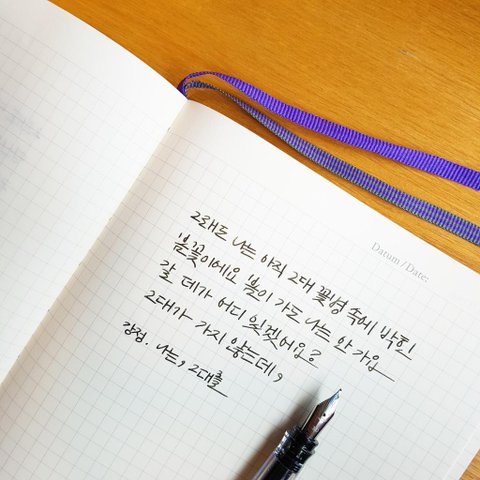 Datum/Date:
그래도 나는 아직 그대 꽃병 속에 박힌
봄꽃이에요 봄이 가도 나는 안 가요
갈 데가 어디 있겠어요?
그대가 가지 않는데,
강정. 나는, 그대를